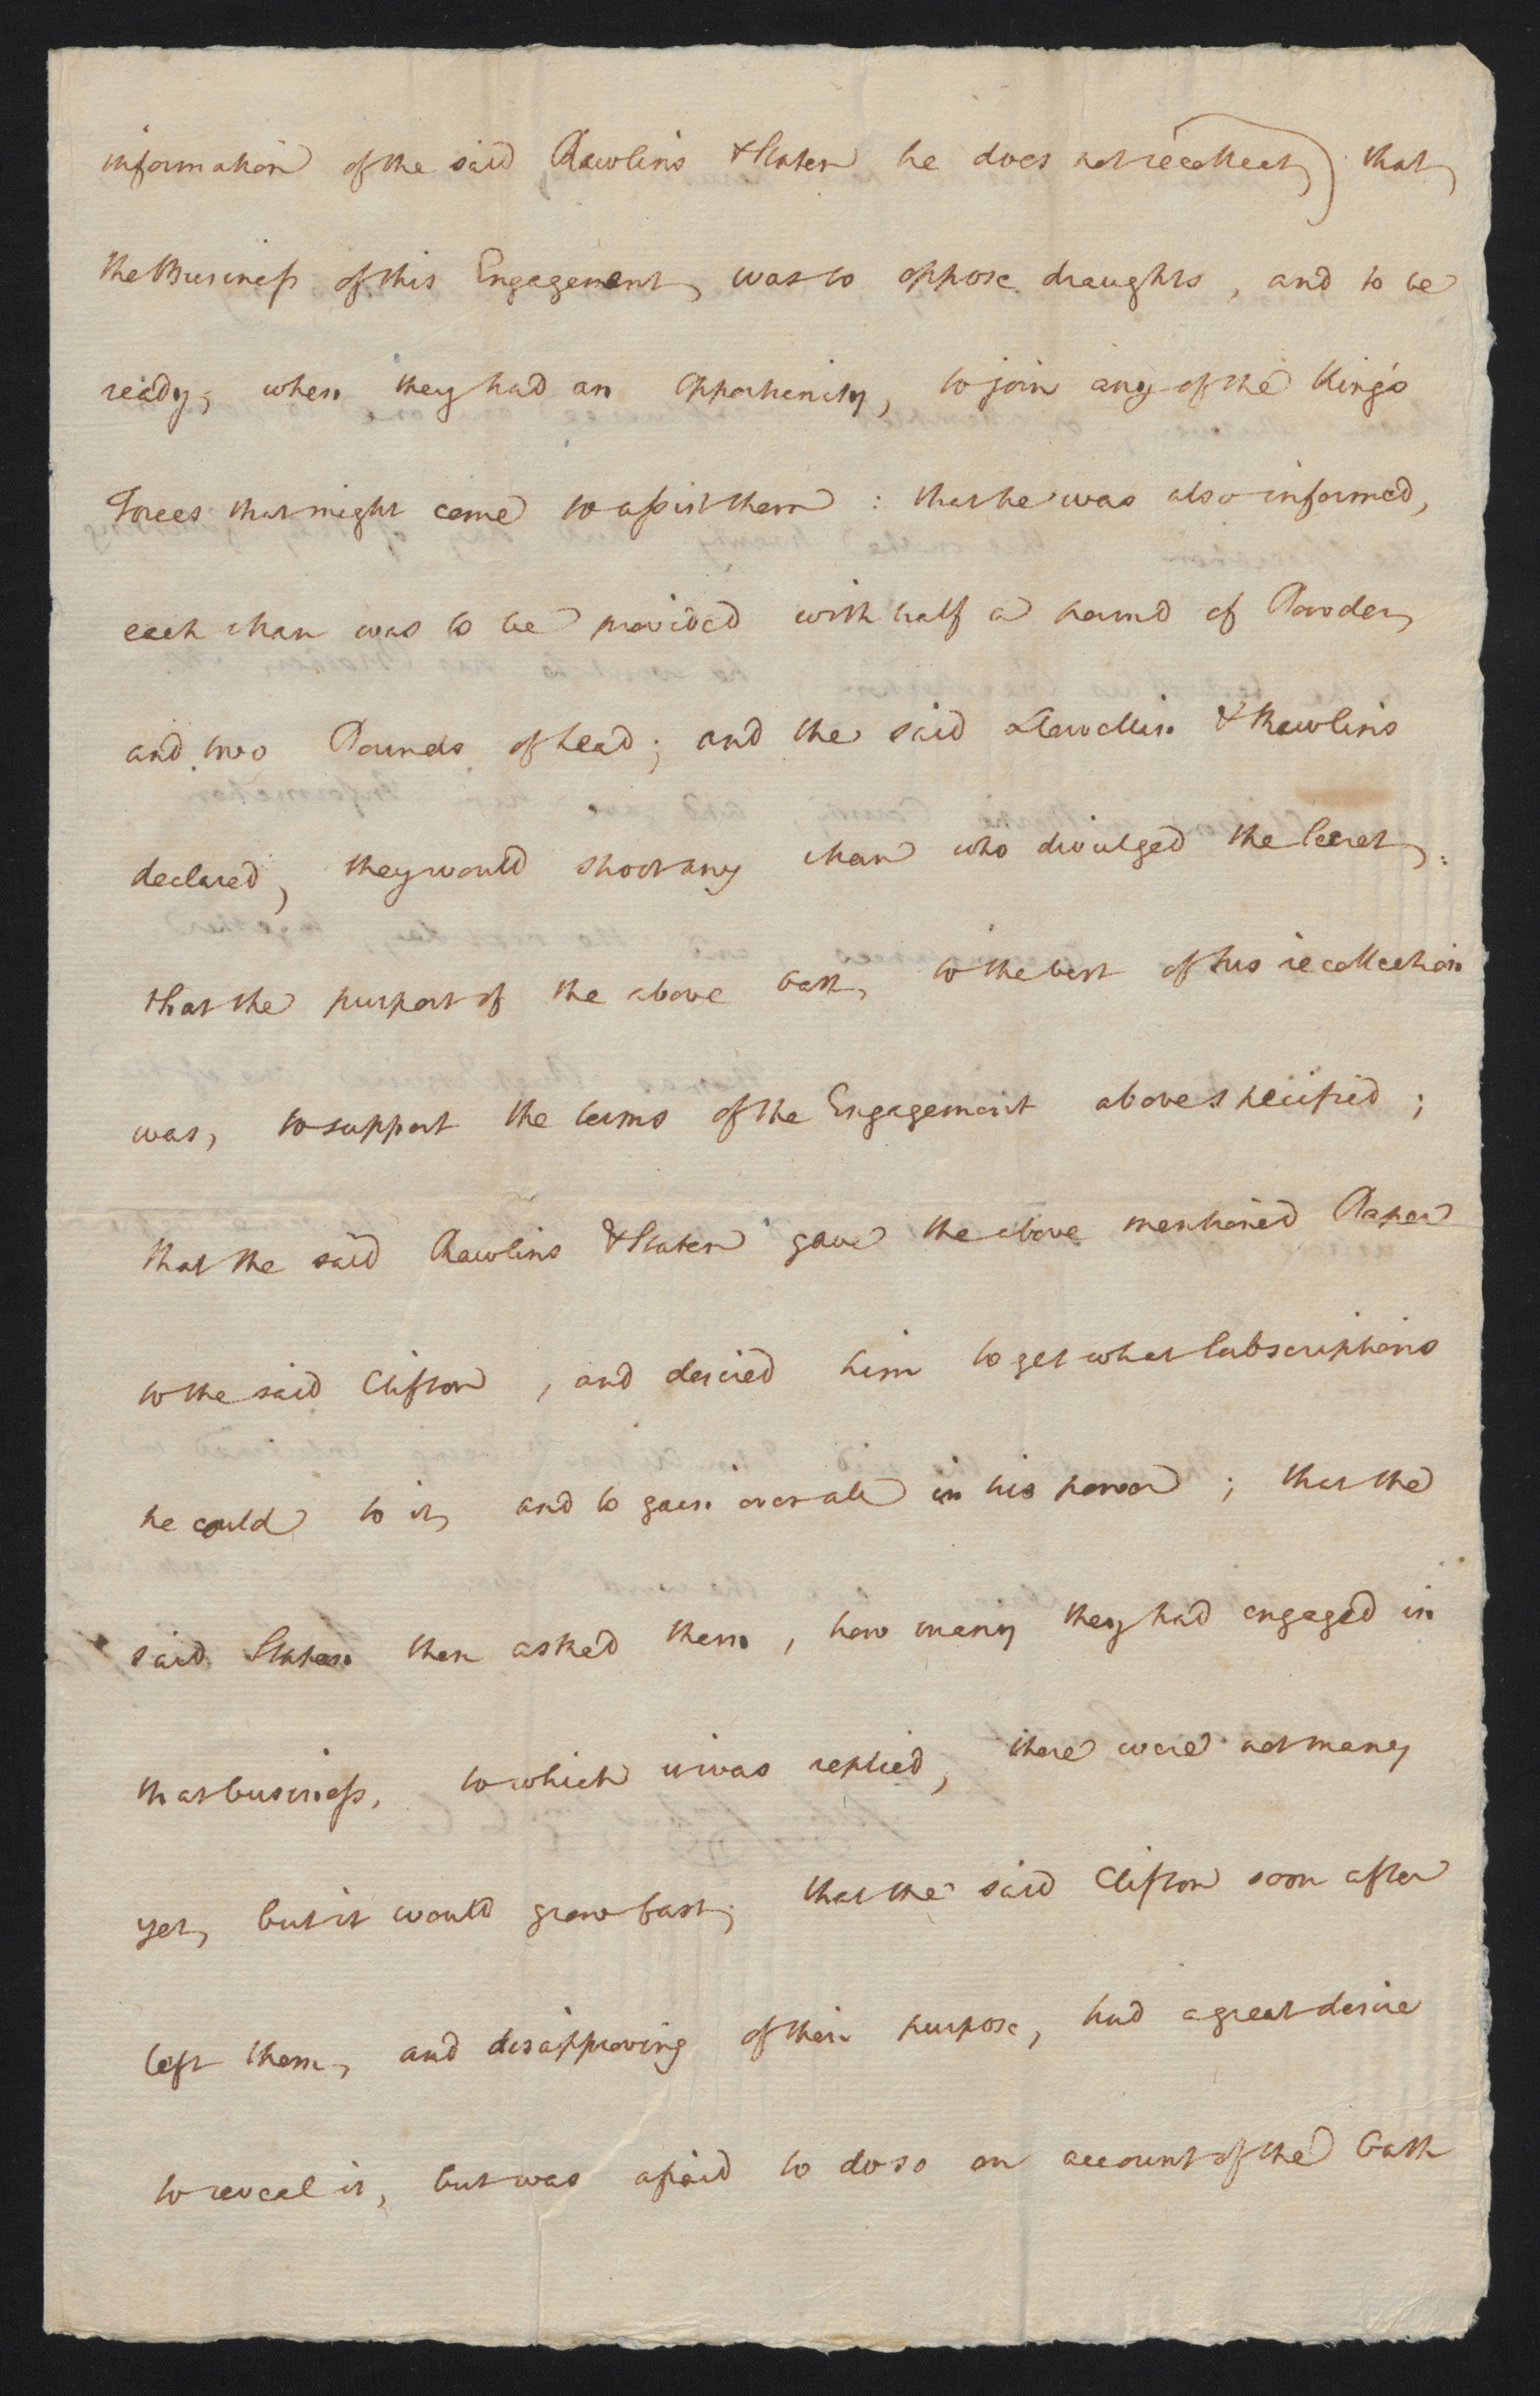 information of the said Rawlins & Slaten he does not recollect) that
the Business of this Engagement, was to oppose draughts, and to be
ready, when they had an Opportunity, to join any of the King's
Forces that might come to assist them : that he was also informed,
each Man was to be provided with half a pound of Powder,
and two Pounds of Lead; and the said Lewellin & Rawlins
declared, they would shoot any Man who divulged the Secret:
that the purport of the above oath, to the best of his recollection
was, to support the terms of the Engagement above specified ;
that the said Rawlins & Slaten gave the above mentioned Paper
to the said Clifton, and desired him to get what Subscriptions
he could to it, and to gain over all in his power ; that the
said Slaten then asked them, how many they had engaged in
that business, to which it was replied, there were not many
yet, but it would grow fast; that the said Clifton soon after
left them, and disapproving of their purpose, had a great desire
to reveal it, but was afraid to do so on account of the Oath